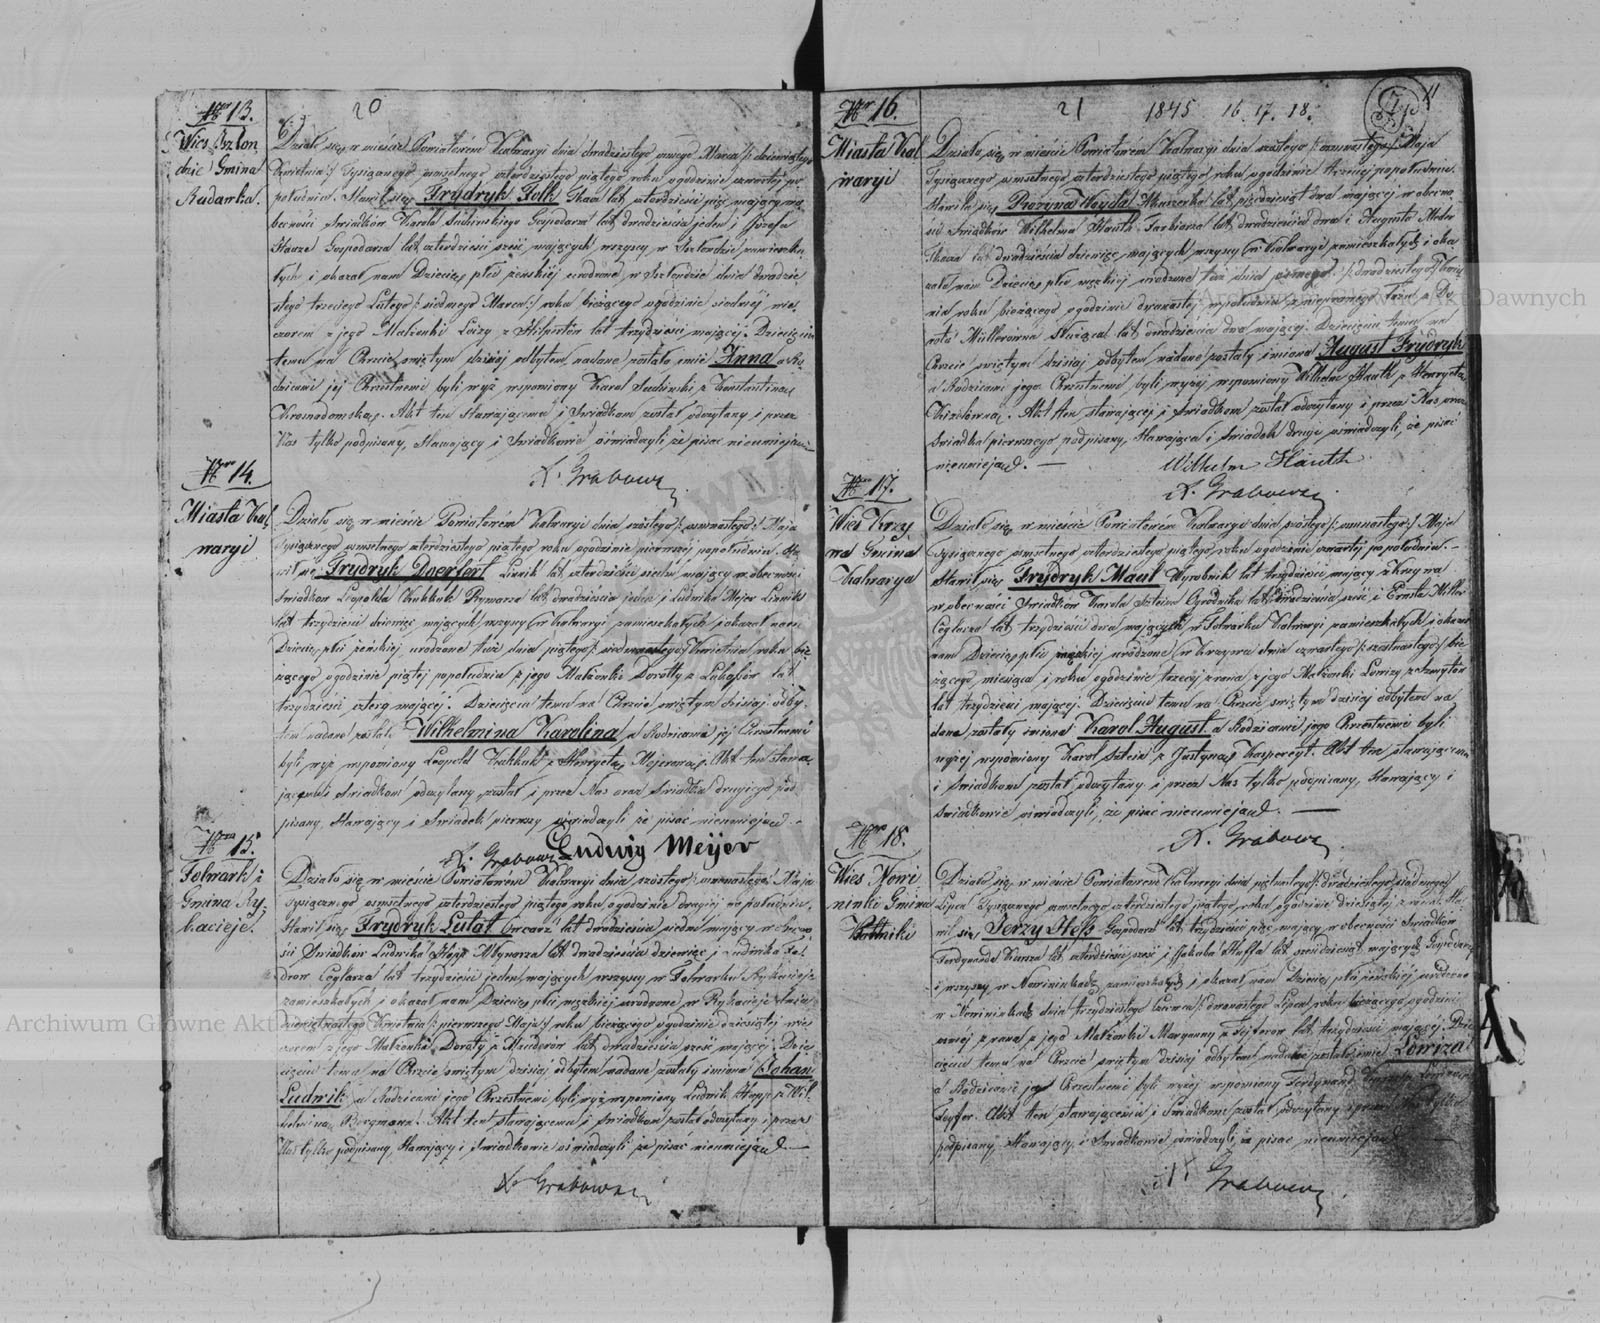 Nro 13.
20
Wieś Szlon
dzie Gmina
Rudawka.
Działo się w mieście Powiatowém Kalwaryi dnia dwudziestego Marca /: dziewiątego
Kwietnia :/ Tysiącznego ośmsetnego czterdziestego piątego roku o godzinie czwartej po
południu. Stawił się Frydryk Folk Tkacz lat czterdzieści pięć mający w o
becności Świadków Karola Gospodarza lat dwadzieścia jeden i Józefa
Haaze Gospodarza lat czterdzieści sześć mających wszyscy w zamieszka
łych i okazał nam Dziecię płci żeńskiéj urodzone w dnia dwudzie
stego trzeciego Lutego /: siódmego Marca :/ roku bieżącego o godzinie siódméj wie
czorem z jego Małżonki Loizy z lat trzydzieści mającéj. Dziecięciu
temu na Chrzcie świętym dzisiaj odbytem nadane zostało imie Anna a Ro
dzicami jéj Chrzestnemi byli wyż wspomiony Karol z Konstantiną
Akt ten stawającemu i Świadkom został odczytany i przez
Nas tylko podpisany, Stawający i Świadkowie oświadczyli że pisać nieumieją
X. Grabows
Nro 14.
Miasta Kal
waryi
Działo się w mieście Powiatowém Kalwaryi dnia szóstego /: osmnastego :/ Maja
Tysiącznego ośmsetnego czterdziestego piątego roku o godzinie pierwszéj popołudniu. Sta
wił się Frydryk Doerfert lat czterdzieści siedm mający w obecności
Świadków Leopolda Kukkuk Rymarza lat dwadzieścia jeden i Ludwika Mejer
lat trzydzieści dziewięć mających wszyscy w Kalwaryi zamieszkałych i okazał nam
Dziecię płci żeńskiej urodzone tuż dnia piątego /: siedmnastego :/ Kwietnia roku bie
żącego o godzinie piątéj popołudniu z jego Małżonki Dorotty z lat
trzydzieści cztery mającéj. Dziecięciu temu na Chrzcie świętym dzisiaj odby
tem nadane zostały Wilhelmina Karolina a Rodzicami jéj Chrzestnemi
byli wyż wspomiony Leopold Kukkuk z Henryetą Mejerową. Akt ten stawa
jącemu i Świadkom odczytany został i przez Nas oraz Świadka drugiego pod
pisany, Stawający i Świadek pierwszy oświadczyli że pisać nieumieją
X. Grabows Ludwig Meÿer
Nro 15.
Folwark i
Gmina Ry
kacieje.
Działo się w mieście Powiatowém Kalwaryi dnia szóstego /: osmnastego :/ Maja
tysiącznego ośmsetnego czterdziestego piątego roku o godzinie drugiej po południu.
Stawił się Frydryk Lutat Owczarz lat dwadzieścia siedm mający w obecno
ści Świadków Ludwika Hopp Młynarza lat dwadzieścia dziewięć i Ludwika
Ceglarza lat trzydzieści jeden mających wszyscy w Folwarku Rykacieje
zamieszkałych i okazał nam Dziecię płci męzkiej urodzone w Rykacieje dnia
dziewiętnastego Kwietnia /: pierwszego Maja :/ roku bieżącego o godzinie dziesiątej wie
czorem z jego Małżonki Doroty z lat dwadzieścia sześć mającéj. Dzie
cięciu temu na Chrzcie świętym dzisiaj odbytem nadane zostały imiona Johan
Ludwik a Rodzicami jego Chrzestnemi byli wyż wspomiony Ludwik Hopp z Wil
helminą Bergmann. Akt ten stawającemu i Świadkom został odczytany i przez
Nas tylko podpisany, Stawający i Świadkowie oświadczyli że pisać nieumieją.
X. Grabows
Nro 16.
21 1845 16. 17. 18.
11
Miasta Kal
waryi
Działo się w mieście Powiatowém Kalwaryi dnia szóstego /: osmnastego :/ Maja
Tysiącznego ośmsetnego czterdziestego piątego roku o godzinie trzeciej popołudniu.
Stawiła się Rozyna Heyda Akuszerka lat pięćdziesiąt dwa mającej w obecno
ści Świadków Wilhelma Hauth Farbiarza lat dwadzieścia dwa i Augusta
Tkacza lat dwadzieścia dziewięć mających wszyscy w Kalwaryi zamieszkałych i oka
zała nam Dziecię płci męzkiej urodzone tuż dnia ósmego /: dwudziestego :/
nia roku bieżącego o godzinie dwunastéj w południe z niewiadomego Ojca z Do
roty Müllerówna Służącą lat dwadzieścia dwa mającéj. Dziecięciu temu na
Chrzcie świętym dzisiaj odbytem nadane zostały imiona August Frydryk
a Rodzicami jego Chrzestnemi byli wyżej wspomiony Wilhelm Hauth z Henryetą
Akt ten stawającéj i Świadkom został odczytany i przez Nas oraz
Świadka pierwszego podpisany, Stawająca i Świadek drugi oświadczyli, że pisać
nieumieją.
Wilhelm Hauth
X. Grabows
Nro 17.
Wieś Krzy
wa Gmina
Kalwarya
Działo się w mieście Powiatowém Kalwaryi dnia szóstego /: osmnastego :/ Maja
Tysiącznego ośmsetnego czterdziestego piątego roku o godzinie czwartéj popołudniu.
Stawił się Frydryk Maul Wyrobnik lat trzydzieści mający z Krzywa
w obecności Świadków Karola Sztein Ogrodnika lat dwadzieścia sześć i Ernsta Miller
Ceglarza lat trzydzieści dwa mających w Folwarku Kalwaryi zamieszkałych i okazał
nam Dziecię płci męzkiej urodzone w Krzywa dnia czwartego /: szesnastego :/ bie
żącego miesiąca i roku o godzinie trzeciéj z rana z jego Małżonki Lowizy z
lat trzydzieści mającéj. Dziecięciu temu na Chrzcie świętym dzisiaj odbytem na
dane zostały imiona Karol August a Rodzicami jego Chrzestnemi byli
wyżej wspomiony Karol Sztein z Justyną Kaspereyt. Akt ten stawającemu
i Świadkom został odczytany i przez Nas tylko podpisany, Stawający i
Świadkowie oświadczyli, że pisać nieumieją.
X. Grabows
Nro 18.
Wieś Nowi
ninki Gmina
Działo się w mieście Powiatowém Kalwaryi dnia piętnastego /: dwudziestego siódmego :/
Lipca Tysiącznego ośmsetnego czterdziestego piątego roku o godzinie dziesiątéj z rana. Sta
wił się Jerzy Heß Gospodarz lat trzydzieści pięć mający w obecności Świadków
Ferdynanda lat czterdzieści sześć i Jakuba lat sześćdziesiąt mających Gospodarzy
i wszyscy w Nowininkach zamieszkałych i okazał nam Dziecię płci żeńskiéj urodzone
w Nowininkach dnia trzydziestego Czerwca /: dwunastego Lipca :/ roku bieżącego o godzinie
ósméj z rana z jego Małżonki Maryanny z lat trzydzieści mającéj. Dzie
cięciu temu na Chrzcie świętym dzisiaj odbytem nadane zostało imie Lowiza
a Rodzicami jej Chrzestnemi byli wyżéj wspomiony Ferdynand
Akt ten stawającemu i Świadkom został odczytany i przez Nas tylko
podpisany, Stawający i Świadkowie oświadczyli, że pisać nieumieją
X. Grabows
Archiwum Główne Akt Dawnych
Archiwum Główne Akt Dawnych